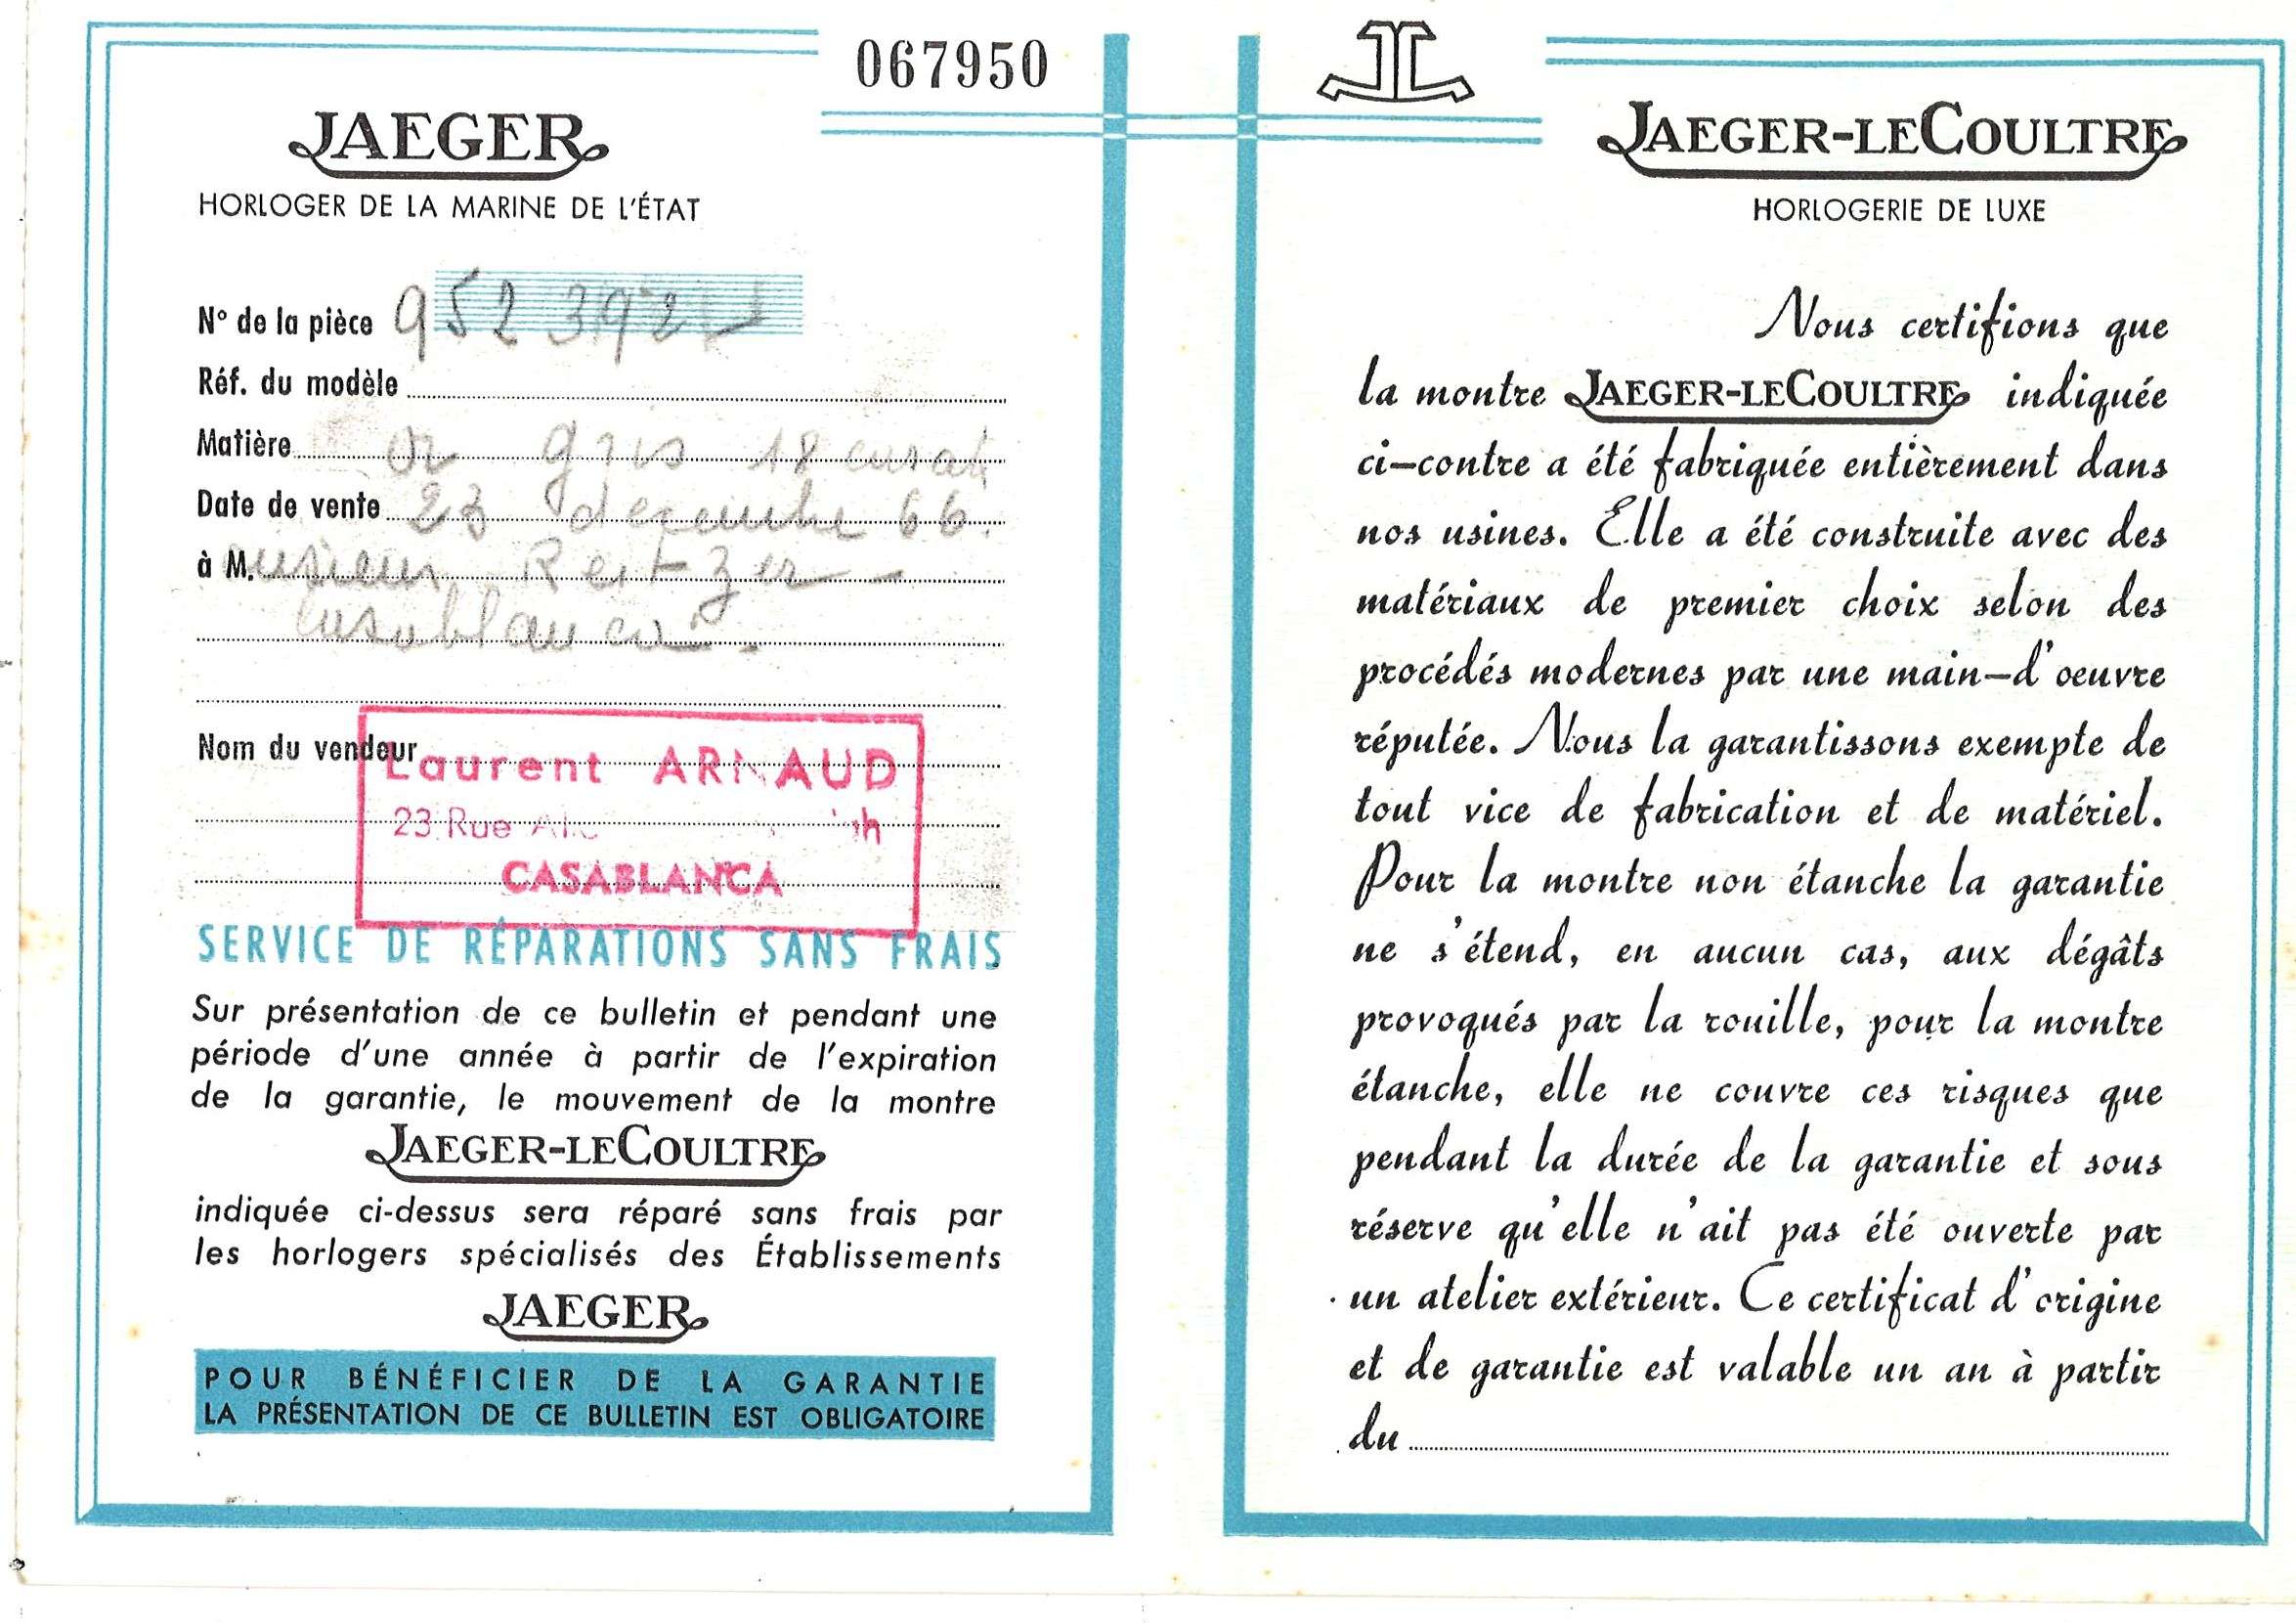 067950
JAEGER
HORLOGER DE LA MARINE DE L'ÉTAT
N° de la pièce
Réf. du modèle
Matière or gris 18 carat
Date de vente 23 decembre 66.
à M.
Casablanca
Nom du vendeur
Laurent ARNAUD
23 Rue
CASABLANCA
SERVICE DE RÉPARATIONS SANS FRAIS
Sur présentation de ce bulletin et pendant une
période d'une année à partir de l'expiration
de la garantie, le mouvement de la montre
JAEGER-LECOULTRE
indiquée ci-dessus sera réparé sans frais par
les horlogers spécialisés des Établissements
JAEGER
POUR BÉNÉFICIER DE LA GARANTIE
LA PRÉSENTATION DE CE BULLETIN EST OBLIGATOIRE
JL
JAEGER-LECOULTRE
HORLOGERIE DE LUXE
Nous certifions que
la montre JAEGER-LECOULTRE indiquée
ci-contre a été fabriquée entièrement dans
nos usines. Elle a été construite avec des
matériaux de premier choix selon des
procédés modernes par une main-d'oeuvre
réputée. Nous la garantissons exempte de
tout vice de fabrication et de matériel.
Pour la montre non étanche la garantie
ne s'étend, en aucun cas, aux dégâts
provoqués par la rouille, pour la montre
étanche, elle ne couvre ces risques que
pendant la durée de la garantie et sous
réserve qu'elle n'ait pas été ouverte par
un atelier extérieur. Ce certificat d'origine
et de garantie est valable un an à partir
du